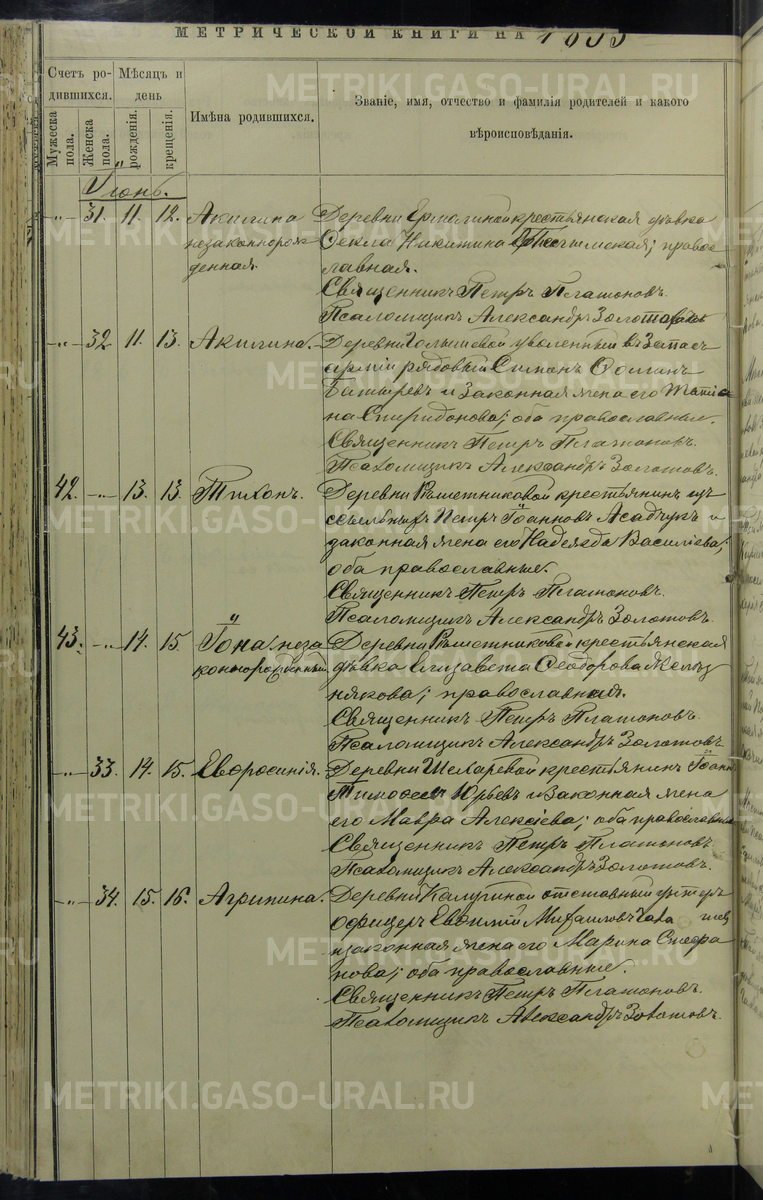 МЕТРИЧЕСКОЙ КНИГИ НА
Счетъ ро- Мѣсяцъ и
дившихся. день
Мужеска пола. Женска пола. рожденія. крещенія. Имѣна родившихся. Званіе, имя, отчество и фамилія родителей и какого
вѣроисповѣданія.
Іюнь.
-"- 31. 11. 12. Акилина Деревни крестьянская дѣвка
незаконнорож Никитина православ
денная. лавная.
Священникъ Петръ Платоновъ.
Псаломщикъ Александръ Золотовъ
-"- 32 11. 13. Акилина. Деревни уволенный въ запасъ
арміи рядовый
Батыревъ и законная жена его Татіа
на Спиридонова; оба православные.
Священникъ Петръ Платоновъ.
Псаломщикъ Александръ Золотовъ.
42. -"- 13. 13. Тихонъ. Деревни Рѣшетниковой крестьянинъ изъ
ссыльныхъ Петръ Іоанновъ Асадчукъ и
законная жена его Надежда Василіева;
оба православные.
Священникъ Петръ Платоновъ.
Псаломщикъ Александръ Золотовъ.
43. -"- 14. 15. Іона незa Деревни Рѣшетниковой крестьянская
коннорожденный дѣвка Елизавета Ѳеодорова
някова; православная.
Священникъ Петръ Платоновъ.
Псаломщикъ Александръ Золотовъ
-"- 33. 14. 15. Евфросинія. Деревни крестьянинъ Іоаннъ
Юрьевъ и законная жена
его Мавра Алексіева; оба православные
Священникъ Петръ Платоновъ.
Псаломщикъ Александръ Золотовъ.
-"- 34. 15. 16. Агрипина. Деревни Калугиной отставный унтеръ
офицеръ Евфимій Михаиловъ
и законная жена его Марина Стефа
нова; оба православные.
Священникъ Петръ Платоновъ.
Псаломщикъ Александръ Золотовъ.
METRIKI.GASO-URAL.RU